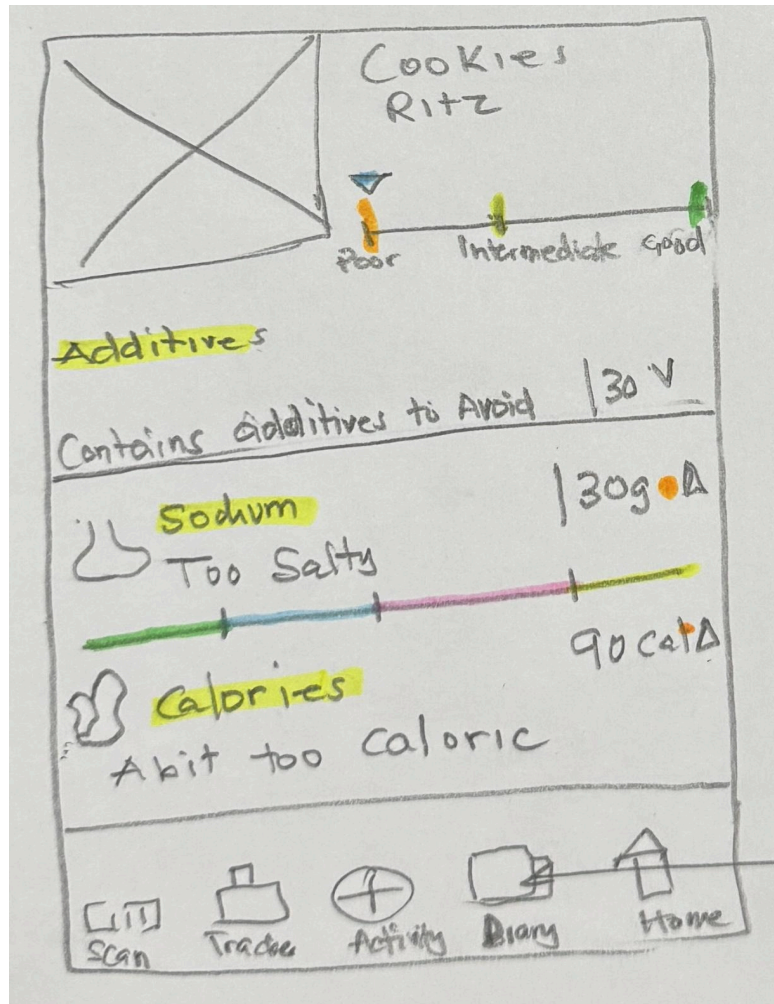 Cookies
Ritz
Poor Intermediate Good
Additives
Contains additives to Avoid 130 V
Sodium 130g
Too Salty
90 Cal
Calories
A bit too Caloric
Scan Activity Diary Home